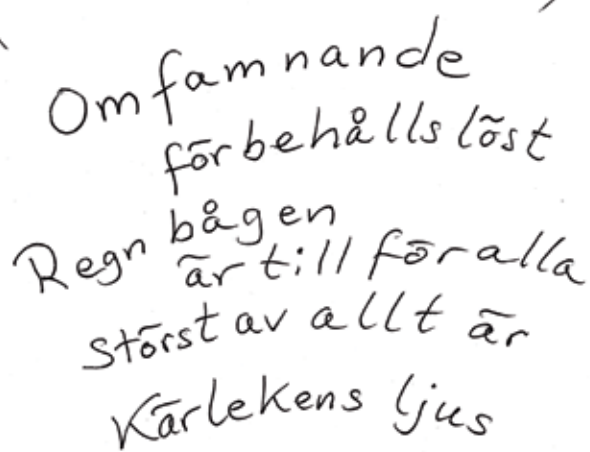 Omfamnande
förbehållslöst
Regnbågen
är till för alla
störst av allt är
Kärlekens ljus